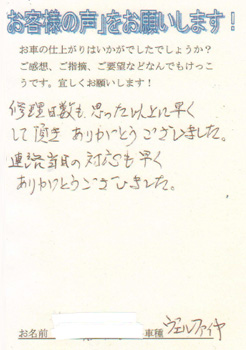 お客様の声」をお願いします!
お車の仕上がりはいかがでしたでしょうか?
ご感想、ご指摘、ご要望などなんでもけっこ
うです。宜しくお願いします!
修理日数も思った以上に早く
して頂き ありがとうございました。
連絡当日の対応も早く
ありがとうございました。
お名前 車種 ヴェルファイヤ